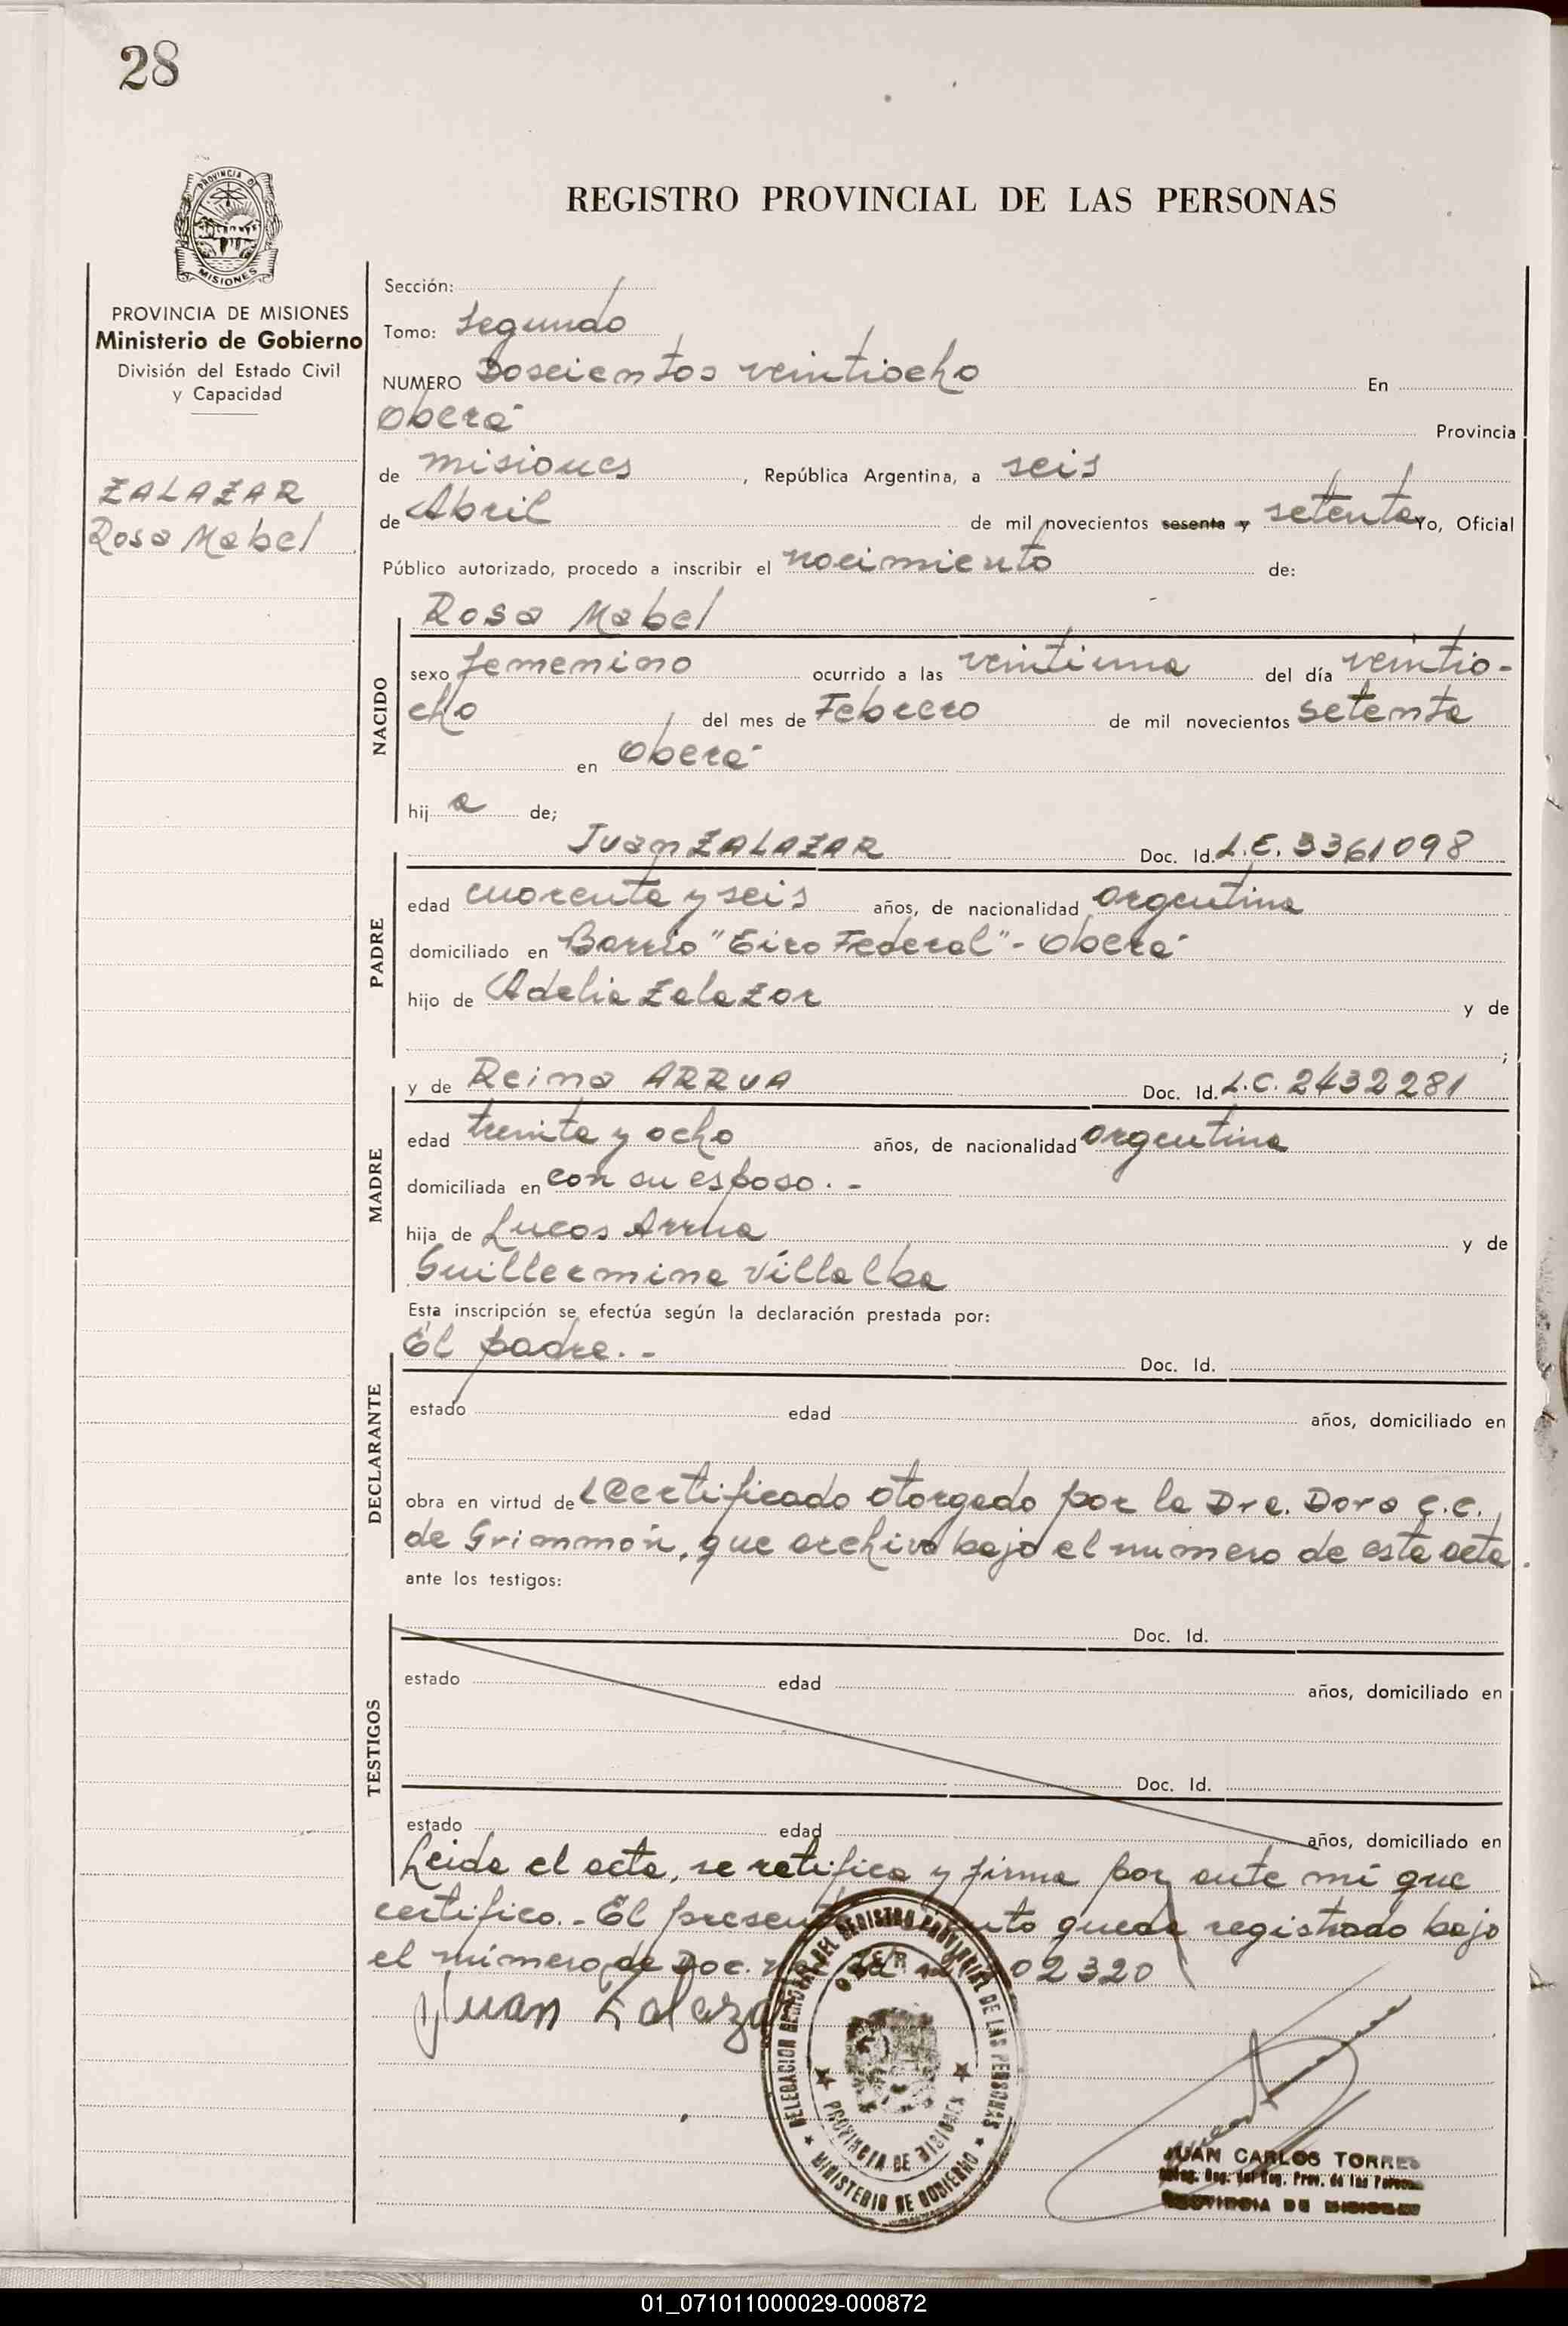 28
PROVINCIA DE MISIONES
REGISTRO PROVINCIAL DE LAS PERSONAS
PROVINCIA DE MISIONES
Ministerio de Gobierno
División del Estado Civil
y Capacidad
ZALAZAR
Rosa Mabel
Sección:
Tomo: Segundo
NUMERO Doscientos veintiocho En
Oberá Provincia
de misiones, República Argentina, a seis
de Abril de mil novecientos sesenta y setenta Yo, Oficial
Público autorizado, procedo a inscribir el nacimiento de:
NACIDO
Rosa Mabel
sexo femenino ocurrido a las veintiuna del día veintio-
cho del mes de Febrero de mil novecientos setenta
en Oberá
hij a de;
PADRE
Juan ZALAZAR Doc. Id. L.E. 3361098
edad cuarenta y seis años, de nacionalidad argentina
domiciliado en Barrio "Tiro Federal" - Oberá
hijo de Adelia Zalazar y de
;
MADRE
y de Reina ARRUA Doc. Id. L.C. 2432281
edad treinta y ocho años, de nacionalidad argentina
domiciliada en con su esposo. -
hija de Lucas Arrua y de
Guillermina Villalba
Esta inscripción se efectúa según la declaración prestada por:
DECLARANTE
El padre. - Doc. Id.
estado edad años, domiciliado en
obra en virtud de Certificado otorgado por la Dra. Dora C.C.
de Grimmon, que archivo bajo el numero de esta acta.
ante los testigos:
TESTIGOS
Doc. Id.
estado edad años, domiciliado en
Doc. Id.
estado edad años, domiciliado en
Leida el acta, se ratifica y firma por ante mí que
certifico. - El presente queda registrado bajo
el número de Doc. 02320
Juan Zalazar
DELEGACION DEL REGISTRO PROVINCIAL DE LAS PERSONAS
OBERA
PROVINCIA DE MISIONES
MINISTERIO DE GOBIERNO
JUAN CARLOS TORRES
Deleg. Reg. del Reg. Prov. de las Personas
PROVINCIA DE MISIONES
01_071011000029-000872